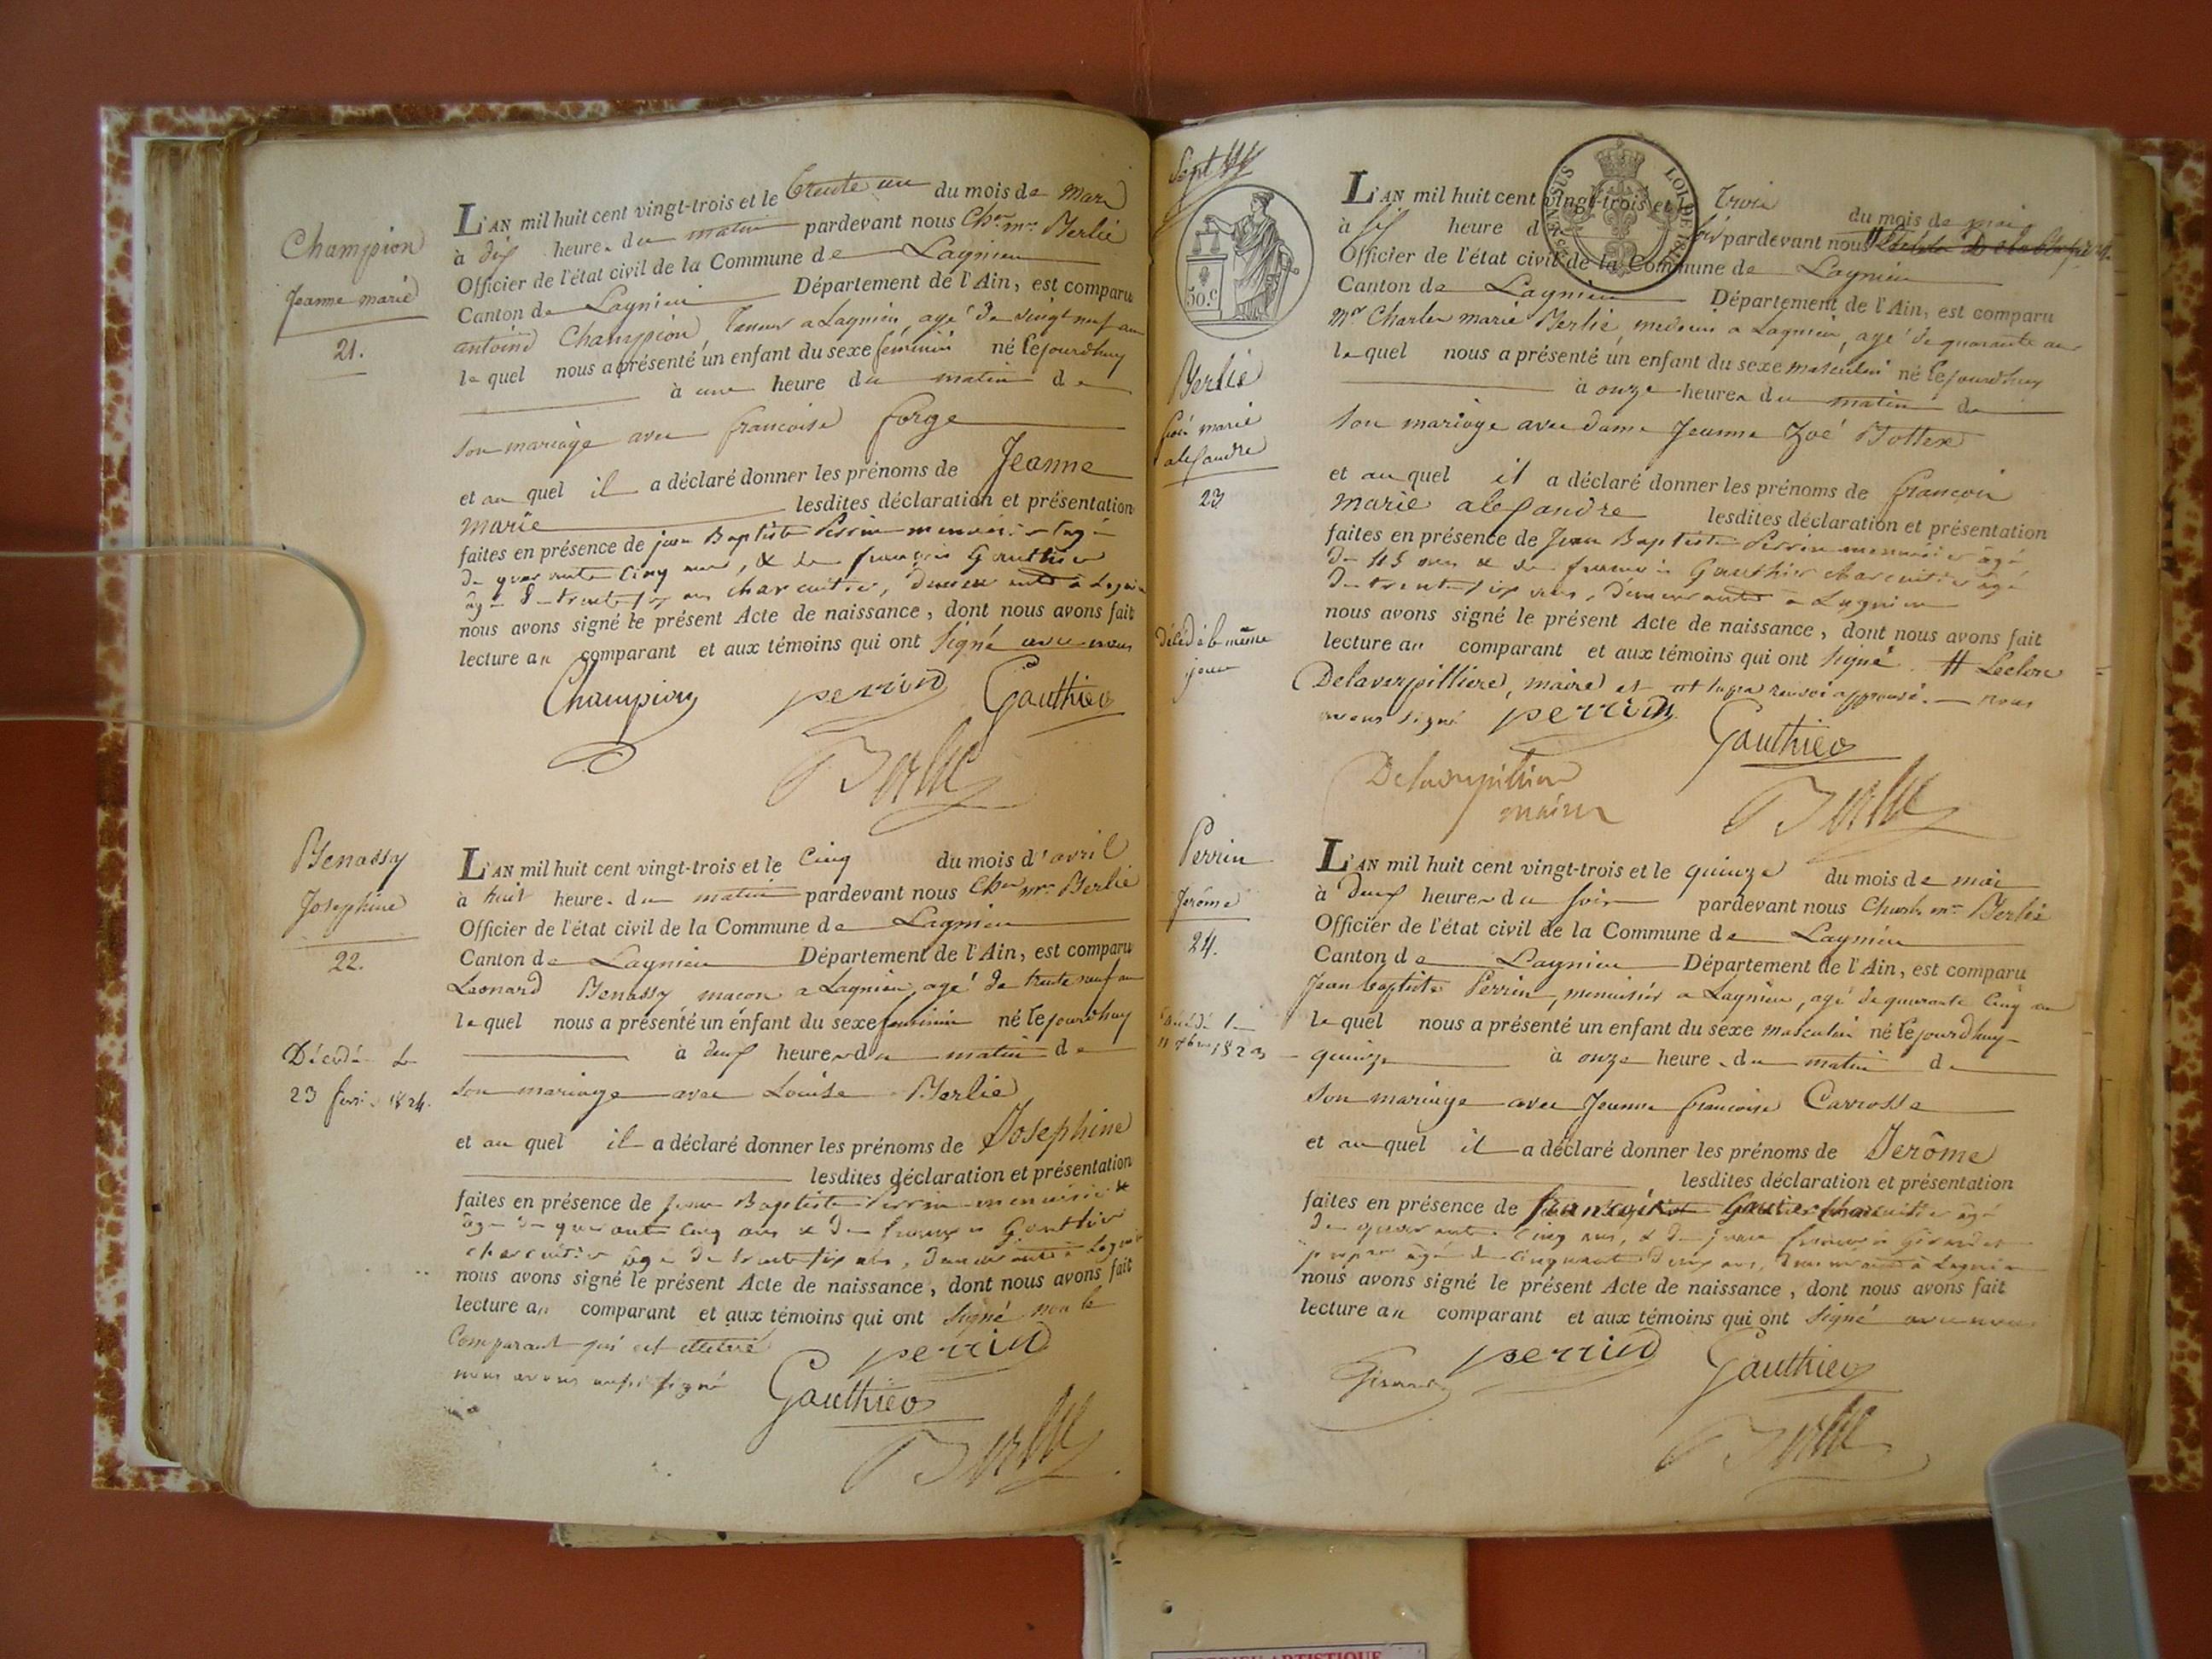 Champion
Jeanne marie
21.
L'AN mil huit cent vingt-trois et le trente un du mois de mars
à dix heures du matin pardevant nous Ch.er m.ie Berlié
Officier de l'état civil de la Commune de Lagnieu
Canton de Lagnieu Département de l'Ain, est comparu
antoine Champion a Lagnieu agé de vingt neuf ans
lequel nous a présenté un enfant du sexe féminin né cejourdhuy
à une heure du matin de
son mariage avec francoise forge
et au quel il a déclaré donner les prénoms de Jeanne
marie lesdites déclaration et présentation
faites en présence de jean Baptiste Perrin menuisier agé
de quarante cinq ans, & de françois Gauthier
âgé de trente six ans charcutier, demeurants à Lagnieu
nous avons signé le présent Acte de naissance, dont nous avons fait
lecture au comparant et aux témoins qui ont signé avec nous
Champion perrin Gauthier
Berlié
Benassy
Josephine
22.
Décédée le
23 fevri. 1824.
L'AN mil huit cent vingt-trois et le cinq du mois d'avril
à huit heures du matin pardevant nous Ch.er m.ie Berlié
Officier de l'état civil de la Commune de Lagnieu
Canton de Lagnieu Département de l'Ain, est comparu
Leonard Benassy macon a Lagnieu, agé de trente neuf ans
lequel nous a présenté un enfant du sexe feminin né cejourdhuy
à deux heures du matin de
son mariage avec Louise Berlié
et au quel il a déclaré donner les prénoms de Josephine
lesdites déclaration et présentation
faites en présence de Jean Baptiste Perrin menuisier
âgé de quarante cinq ans & de françois Gauthier
charcutier âgé de trente six ans, demeurants à Lagnieu
nous avons signé le présent Acte de naissance, dont nous avons fait
lecture au comparant et aux témoins qui ont signé non le
comparant qui est illétré perrin
nous avons aussi signé Gauthier
Berlié
Sept
50.c
Berlié
fçois marie
alexandre
23
Décédé le même
jour
L'AN mil huit cent vingt-trois et le trois du mois de mai
à six heure du soir pardevant nous
Officier de l'état civil de la Commune de Lagnieu
Canton de Lagnieu Département de l'Ain, est comparu
Mr Charles marie Berlié, medecin a Lagnieu, agé de quarante ans
lequel nous a présenté un enfant du sexe masculin né cejourdhuy
à onze heures du matin de
son mariage avec dame Jeanne Zoé Bottex
et au quel il a déclaré donner les prénoms de françois
marie alexandre lesdites déclaration et présentation
faites en présence de Jean Baptiste Perrin menuisier âgé
de 45 ans & de françois Gauthier charcutier âgé
de trente six ans, demeurants à Lagnieu
nous avons signé le présent Acte de naissance, dont nous avons fait
lecture au comparant et aux témoins qui ont signé. # Leclerc
Delaverpilliere, maire renvoi approuvé. nous
avons signé perrin Gauthier
Delaverpilliere
maire
Berlié
Perrin
Jerôme
24.
Décédé le
1823
L'AN mil huit cent vingt-trois et le quinze du mois de mai
à deux heures du soir pardevant nous Charles m.ie Berlié
Officier de l'état civil de la Commune de Lagnieu
Canton de Lagnieu Département de l'Ain, est comparu
Jean baptiste Perrin, menuisier a Lagnieu, agé de quarante cinq ans
lequel nous a présenté un enfant du sexe masculin né cejourdhuy
quinze à onze heures du matin de
son mariage avec Jeanne francoise Carrosse
et au quel il a déclaré donner les prénoms de Jerôme
lesdites déclaration et présentation
faites en présence de françois Gautier charcutier âgé
de quarante cinq ans, & de
âgé de cinquante deux ans, demeurants à Lagnieu
nous avons signé le présent Acte de naissance, dont nous avons fait
lecture au comparant et aux témoins qui ont signé avec nous
perrin Gauthier
Berlié